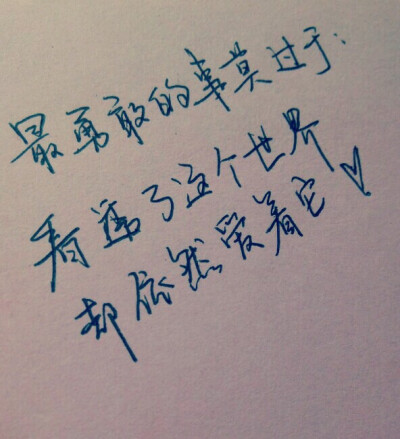 最勇敢的事莫过于：
看透了这个世界
却依然爱着它